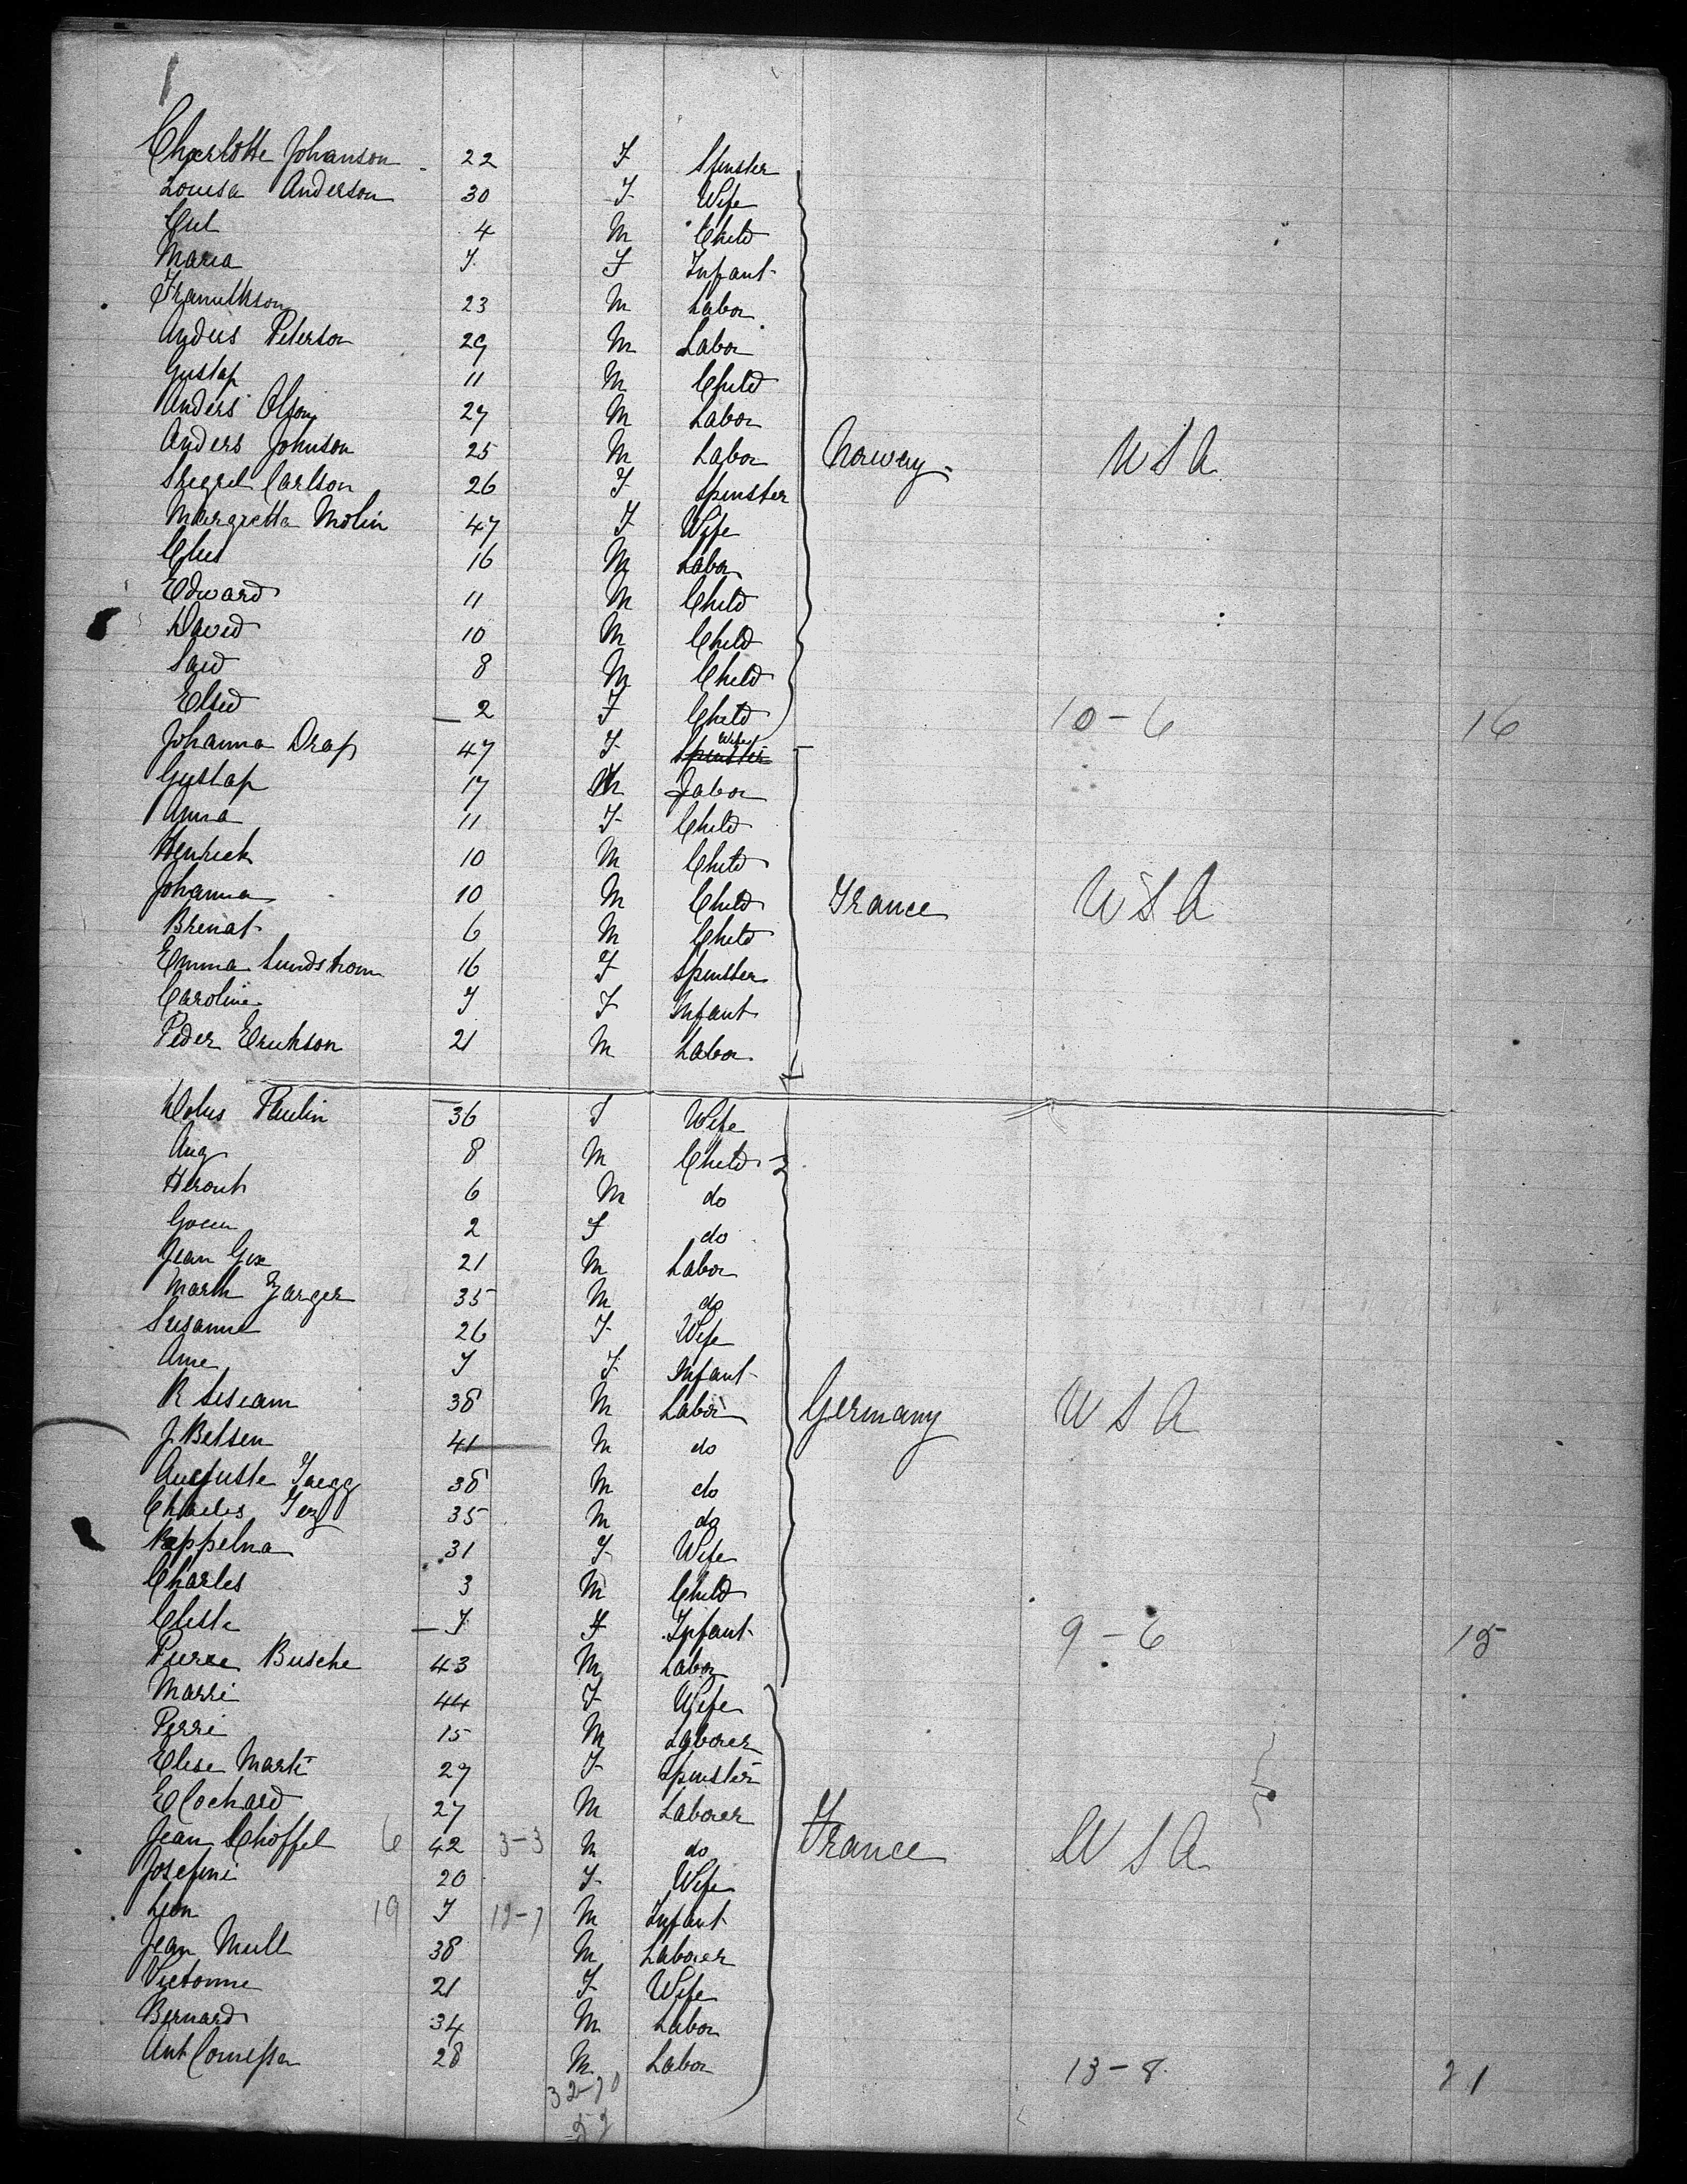 1
Charlotte Johanson 22 F Spinster
Louisa Anderson 30 F Wife
4 M Child
Maria F Infant
23 M Labor
Anders Peterson 29 M Labor
Gustaf 11 M Child
Anders Olson 27 M Labor
Anders Johnson 25 M Labor Norway USA
Carlson 26 F Spinster
Margretta Molin 47 F Wife
16 M Labor
Edward 11 M Child
David 10 M Child
8 M Child
2 F Child 10-6 16
Johanna Drap 47 F Wife Spinster
Gustaf 17 M Labor
Anna 11 F Child
Henrick 10 M Child
Johanna 10 M Child France USA
Brenat 6 M Child
Emma Lundstrom 16 F Spinster
Caroline F Infant
Peder Erickson 21 M Labor
Paulin 36 F Wife
Aug 8 M Child
6 M do
2 F do
Jean 21 M Labor
35 M do
Susanne 26 F Wife
Ame F Infant
38 M Labor Germany USA
J Betsen 41 M do
Auguste Jaegg 38 M do
Charles 35 M do
31 F Wife
Charles 3 M Child
F Infant 9-6 15
Pierre Busche 43 M Labor
Marri 44 F Wife
Perri 15 M Laborer
Elise Marti 29 F Spinster
E Cochard 27 M Laborer
Jean Schoffel 6 42 3-3 M do France USA
Josefine 20 F Wife
Leon 19 12-7 M Infant
Jean Mull 38 M Laborer
21 F Wife
Bernard 34 M Labor
Ant 28 M Labor 13-8 21
32-20
52